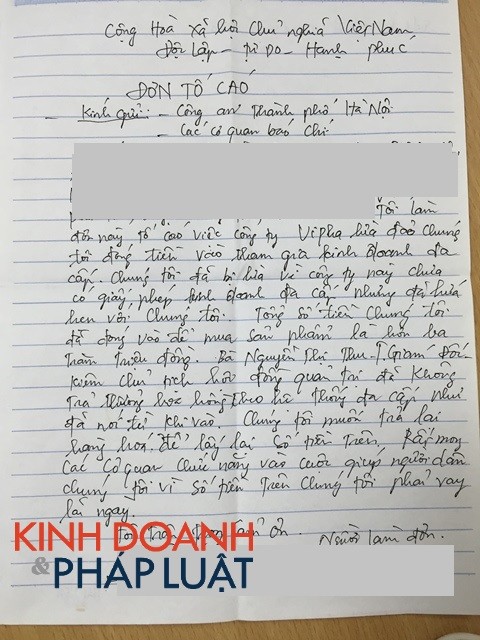 Cộng Hoà xã hội Chủ nghĩa Việt Nam
Độc lập - Tự Do - Hạnh phúc
ĐƠN TỐ CÁO
- Kính gửi: - Công an Thành phố Hà Nội
- Các cơ quan báo Chí
Tôi làm
đơn này tố cáo việc công ty Vipha lừa đảo chúng
tôi đóng tiền vào tham gia kinh doanh đa
cấp. Chúng tôi đã bị lừa vì công ty này chưa
có giấy phép kinh doanh đa cấp nhưng đã hứa
hẹn với chúng tôi. Tổng số tiền chúng tôi
đã đóng vào để mua sản phẩm là hơn ba
trăm triệu đồng. Bà Nguyễn Thị Thu - T. Giám Đốc
kiêm chủ tịch hội đồng quản trị đã không
trả thưởng hoa hồng theo hệ thống đa cấp như
đã nói từ khi vào. Chúng tôi muốn trả lại
hàng hoá để lấy lại số tiền trên. Rất mong
các cơ quan chức năng vào cuộc giúp người dân
chúng tôi vì số tiền trên chúng tôi phải vay
lãi ngay.
Tôi trân trọng cảm ơn. Người làm đơn.
KINH DOANH
& PHÁP LUẬT